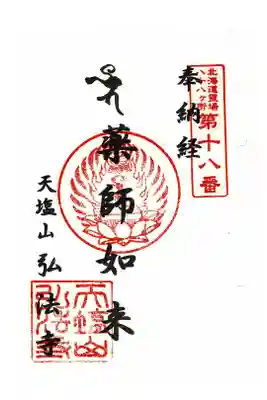 北海道霊場
八十八ヶ所
第十八番
奉納経
薬師如来
天塩山弘法寺